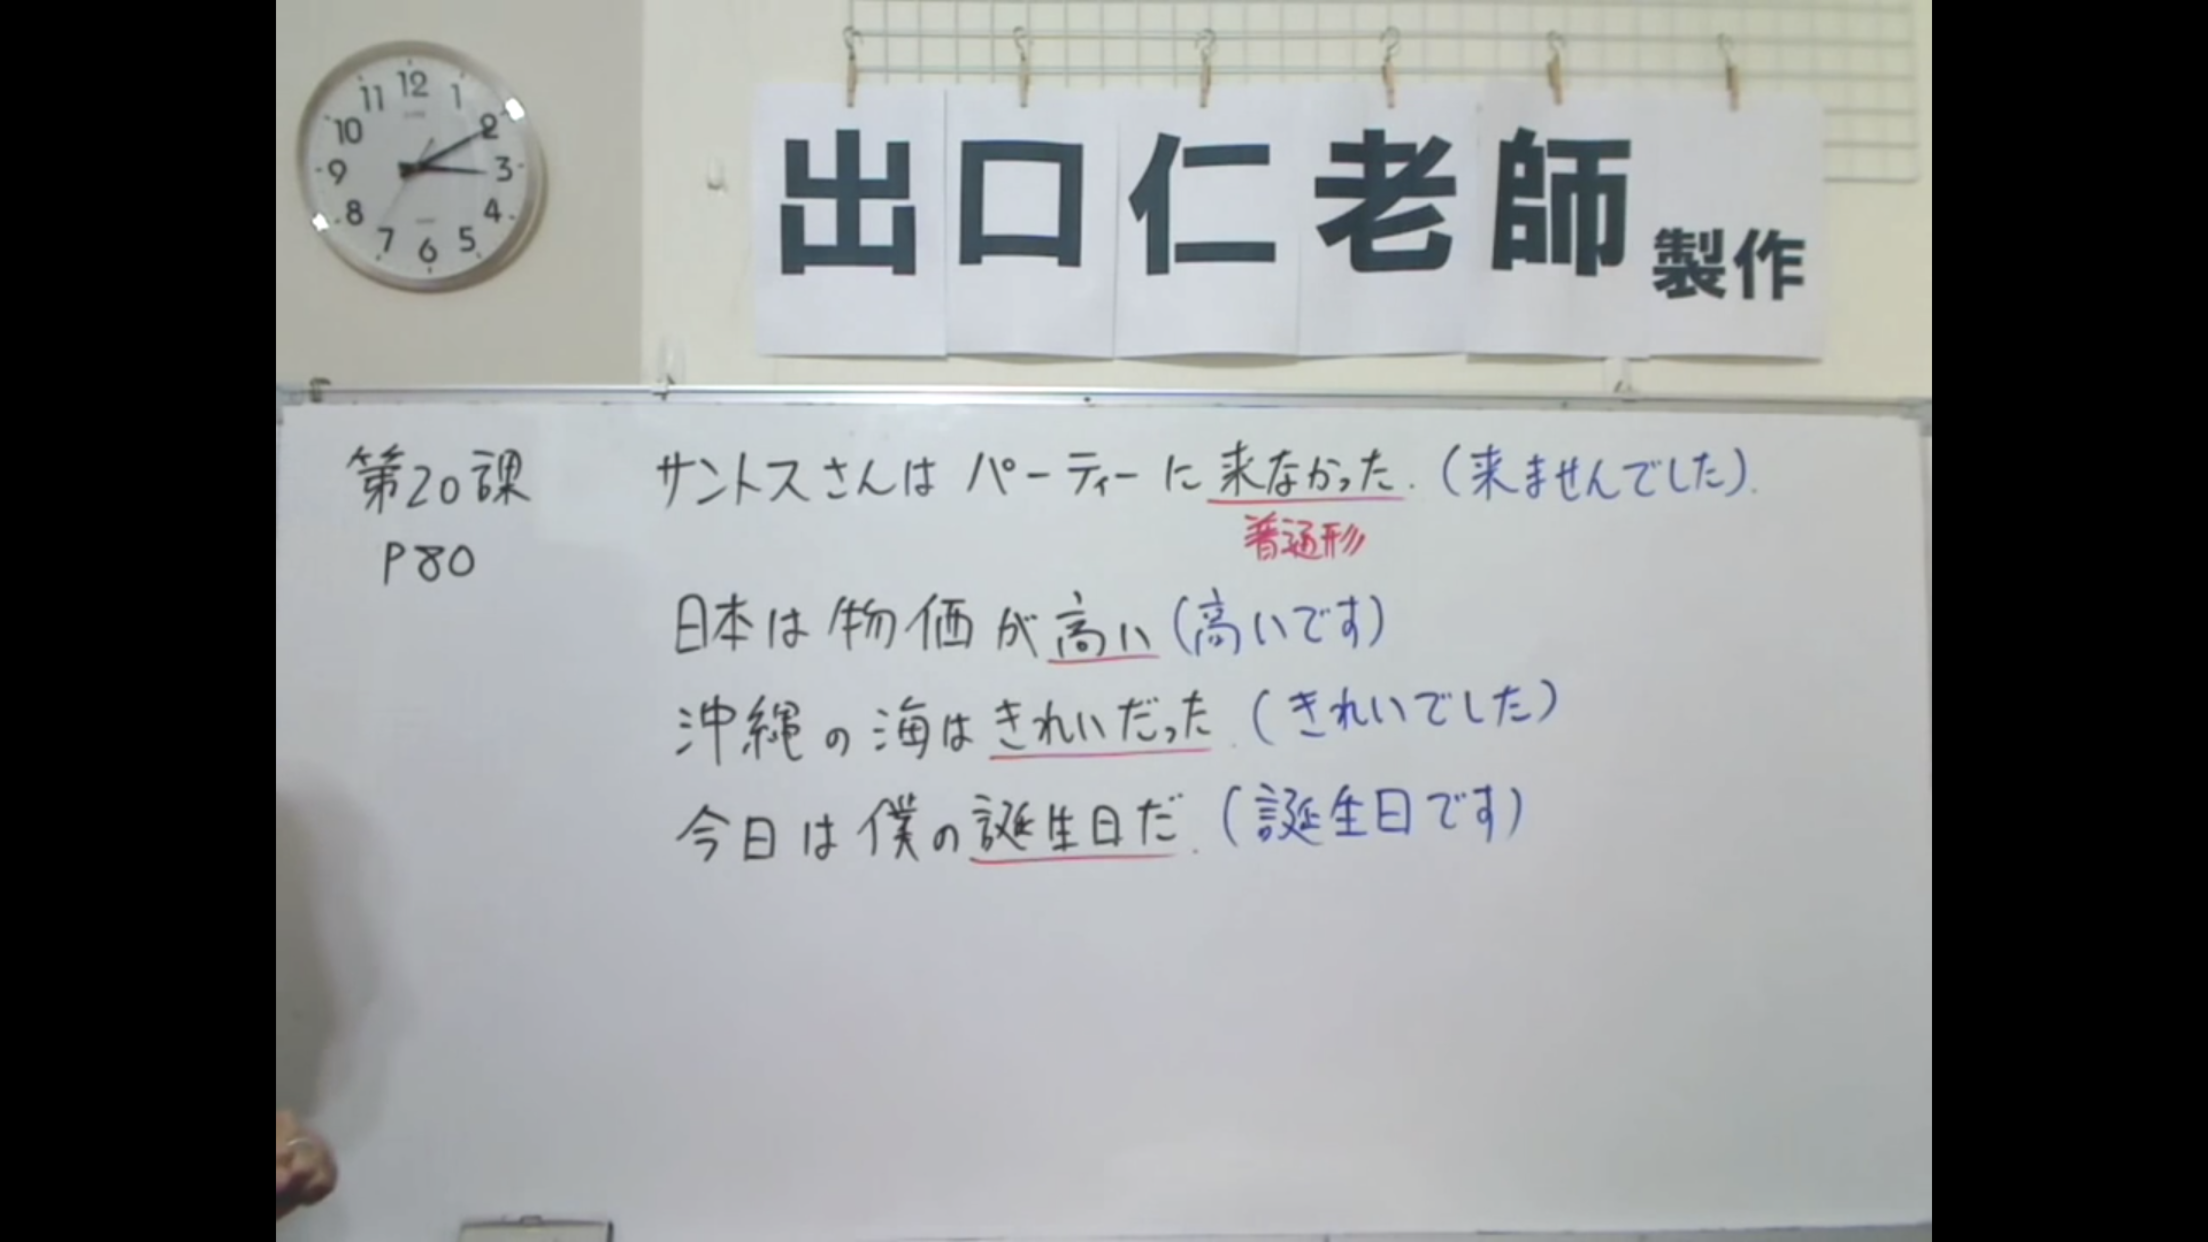 12
11 1
10 2
9 3
8 4
7 5
6
出口仁老師製作
第20課
P80
サントスさんは パーティーに来なかった.(来ませんでした).
普通形
日本は物価が高い(高いです)
沖縄の海はきれいだった.(きれいでした)
今日は僕の誕生日だ.(誕生日です)